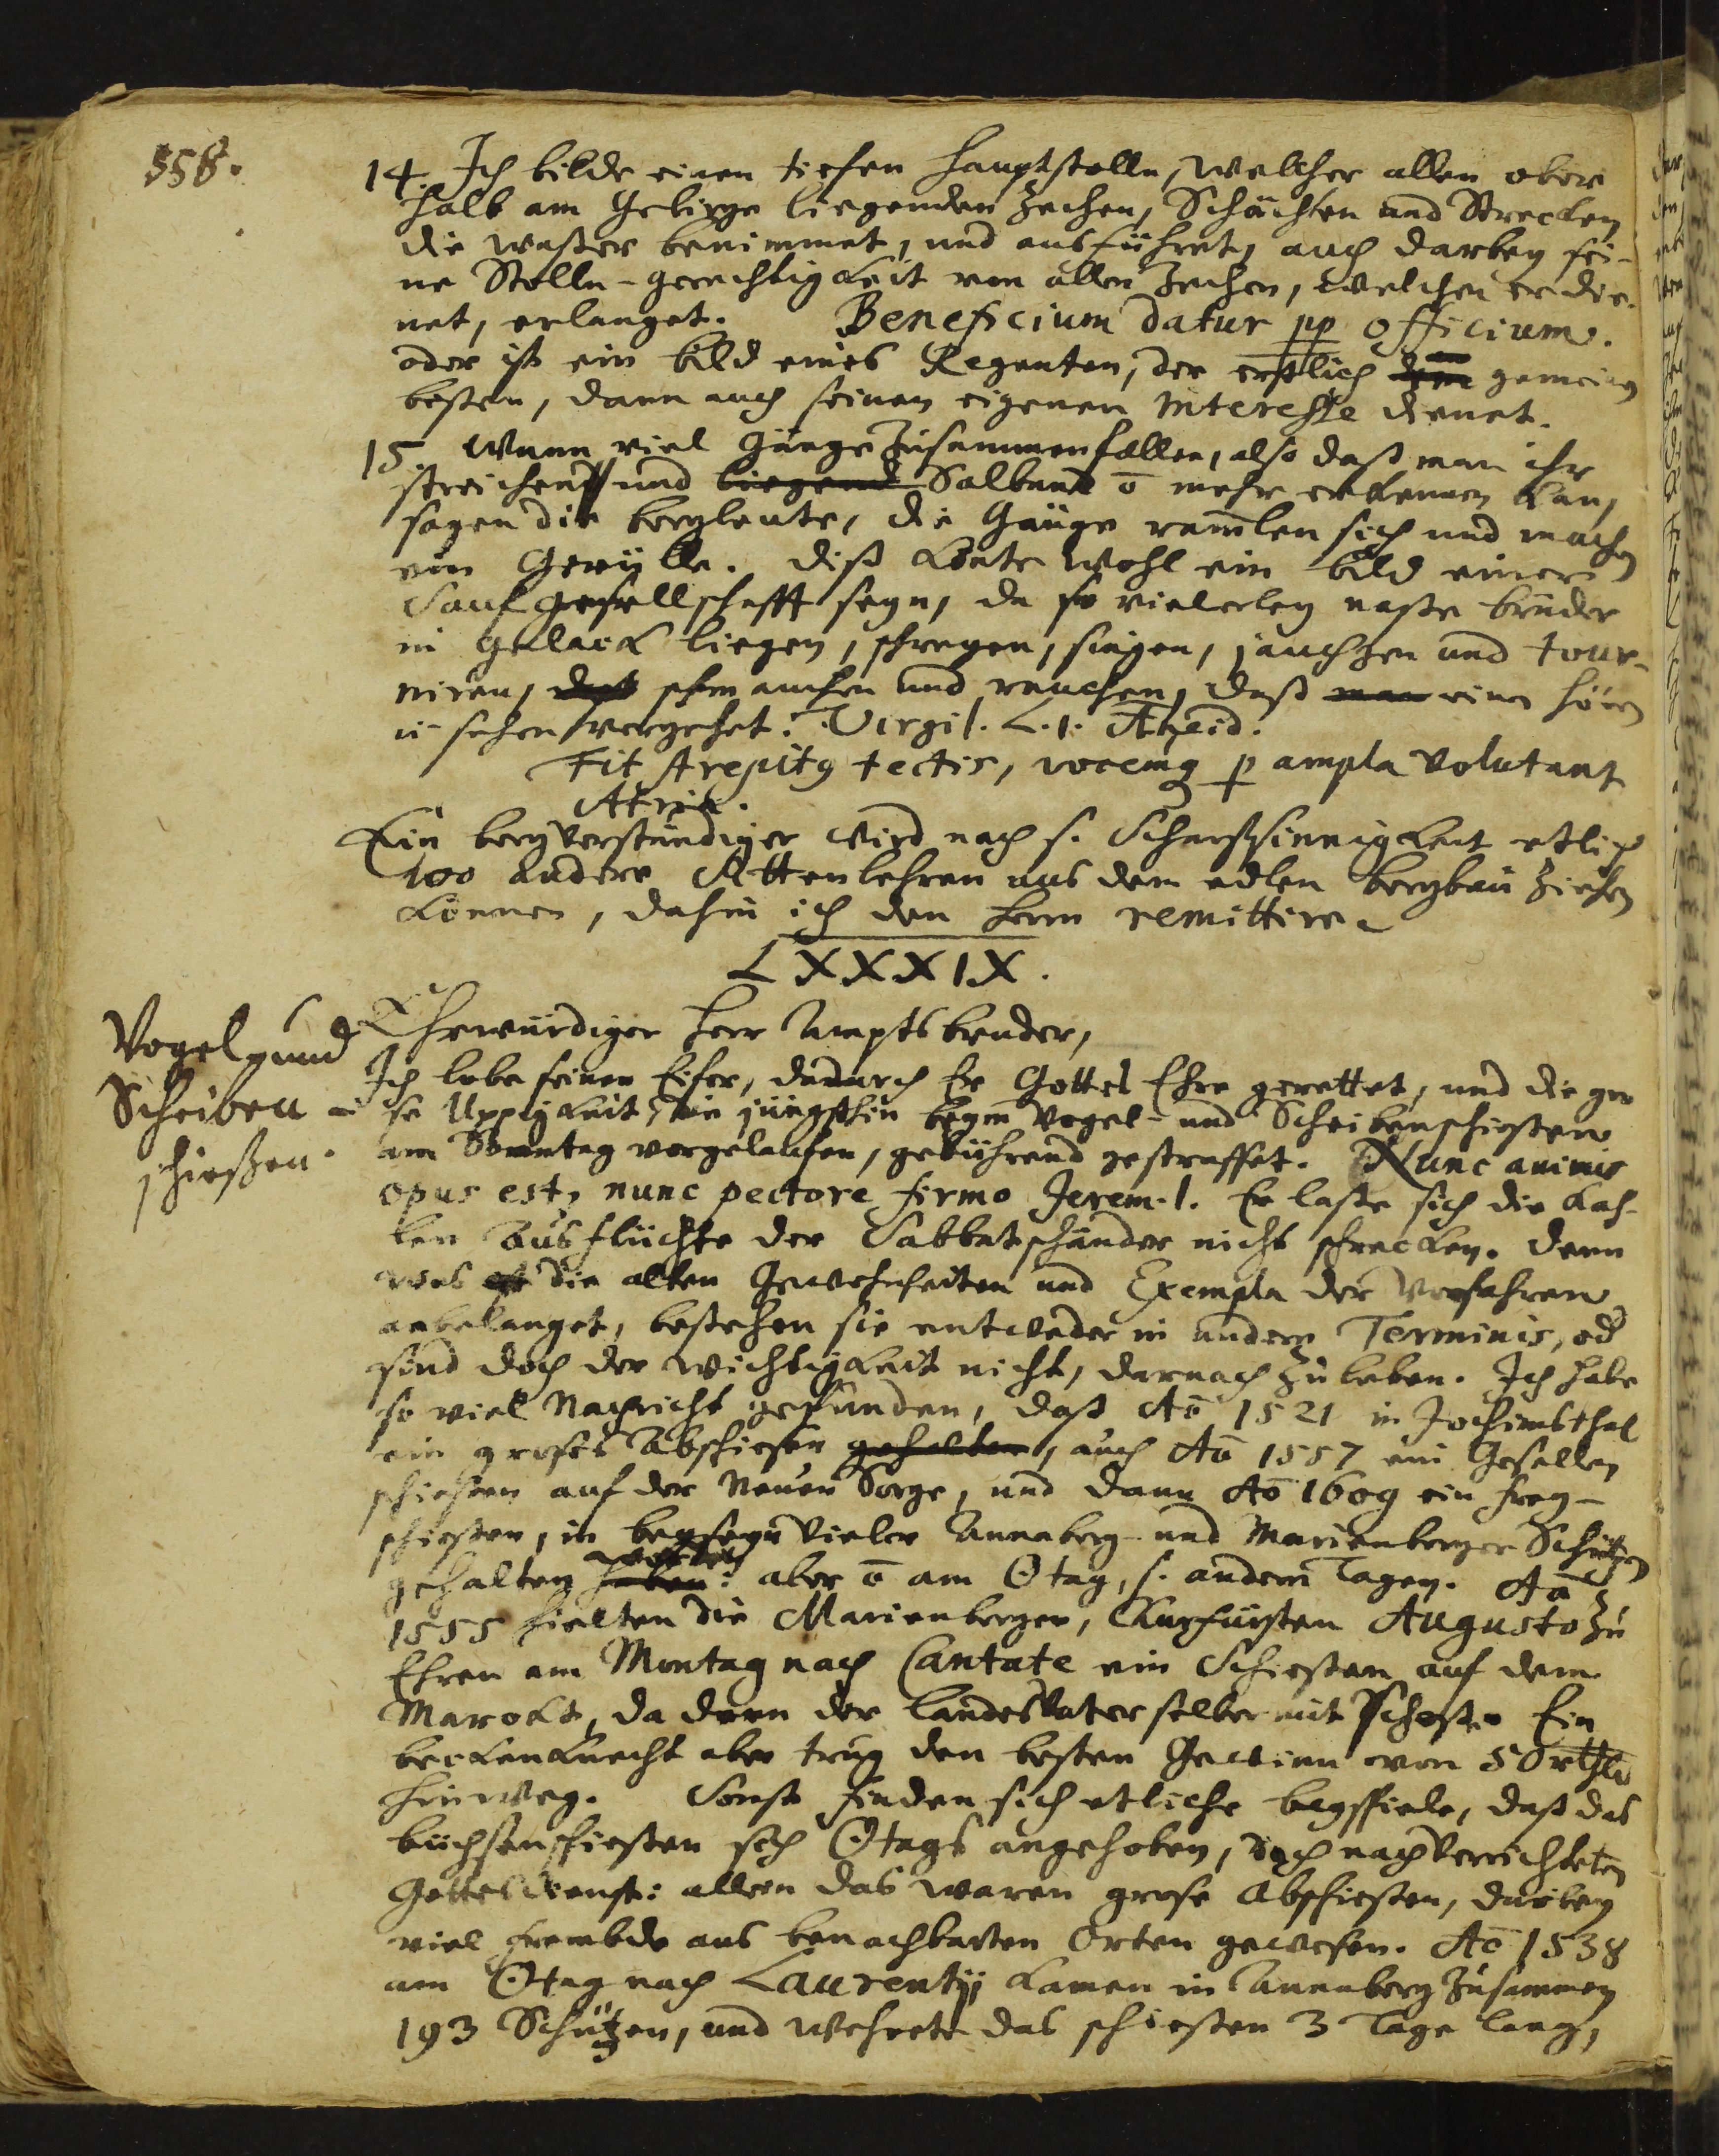 358.
14. Ich bilde einen tiefen Hauptstolln, welcher allen ober
halb am Gebirge liegenden Zechen, Schächten und Strecken
die Waßer benimmet, und ausführet, auch darbey sei-
ne Stolln-gerechtigkeit von allen Zechen, welchen er die-
net, erlanget. Beneficium datur pp officium.
oder ist ein bild eines Regenten, der erstlich dem gemeinen
besten, dann auch seinem eigenen Interesse dienet.
15. Wann viel Gänge zusammen fallen, also daß man ihr
streichend und liegend Salband ō mehr erkennen kan,
sagen die bergleute, die Gänge ram̄len sich und machen
ein Gerülle. Diß könte wohl ein bild einer
Sauf gesellschafft seyn, da so vielerley naße brüder
in Gelack liegen, schreyen, singen, jauchzen und tour-
niren, schmauchen und rauchen, daß man einen hören
ū sehen vergehet. Virgil. L. 1. Æneid.
Fit strepitꝯ tectis, vocemqꝫ p ampla volutant
Atria.
Ein bergverständiger wird nach s. Scharfsinnigkeit etlich
100 andere Sittenlehren aus dem edlen bergbau ziehen
können, dahin ich den Herrn remittire.
LXXXIX.
Vogel- und
Scheiben-
schießen.
Ehrwürdiger Herr Amptsbruder,
Ich lobe seinen Eifer, dadurch Er Gottes Ehre gerettet, und die gro
se Uppigkeit, die jüngsthin beym Vogel- und Scheibenschießen
am Sonntag vorgelaufen, gebührend gestraffet. Nunc animis
opus est, nunc pectore firmo Jerem. 1. Er laße sich die kah-
len Ausflüchte der Sabbatschänder nicht schrecken. Denn
was die alten Gewohnheiten und Exempla der Vorfahren
anbelanget, bestehen sie entweder in andern Terminis, od
sind doch der wichtigkeit nicht, darnach zu leben. Ich habe
so viel Nachricht gefunden, daß Aō 1521 in Jochimsthal
ein großes Abschiesen gehalten, auch Aō 1557 ein Gesellen
schießen auf der Neuen Sorge, und dann Aō 1609 ein frey-
schießen, in beyseyn vieler Annaberg- und Marienberger Schützen
gehalten haben worden: aber ō am ☉tag, s. andern Tagen. Aō
1555 hielten die Marienberger, Churfürsten Augusto zu
Ehren am Montag nach Cantate ein Schießen auf dem
Marckt, da denn der landesVater selber mit schoß. Ein
beckenknecht aber trug den besten Gewinn von 50 rthlr
hinweg. Sonst finden sich etliche beyspiele, daß das
büchsenschießen sich ☉tags angehoben, doch nach verrichteten
Gottesdienst: allein das waren grose Abschießen, darbey
viel frembde aus benachbarten Orten gewesen. Aō 1538
am ☉tag nach Laurentij kamen in Annaberg zusammen
193 Schützen, und wehrete das schießen 3 Tage lang,